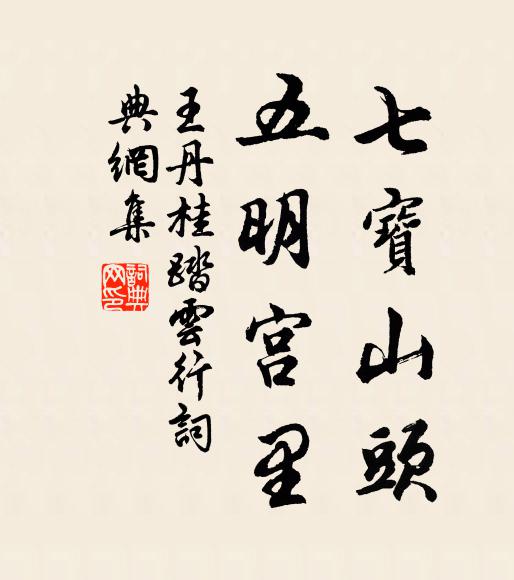 七寶山頭
五明宫里
王丹桂踏雲行詞
典網集
詞典網印